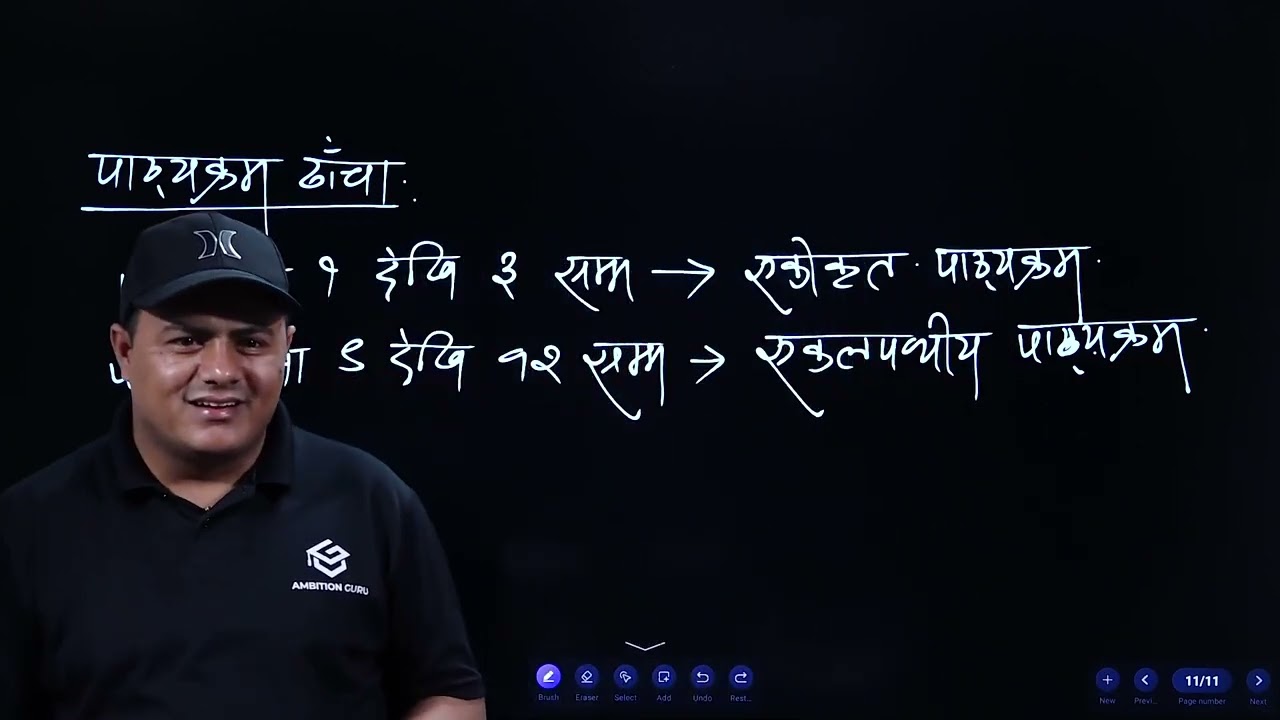 पाठ्यक्रम ढाँचा
१ देखि ३ सम्म → एकीकृत पाठ्यक्रम
९ देखि १२ सम्म → एकलपथीय पाठ्यक्रम
AMBITION GURU
Brush Eraser Select Add Undo Rest...
New Previ... 11/11 Page number Next